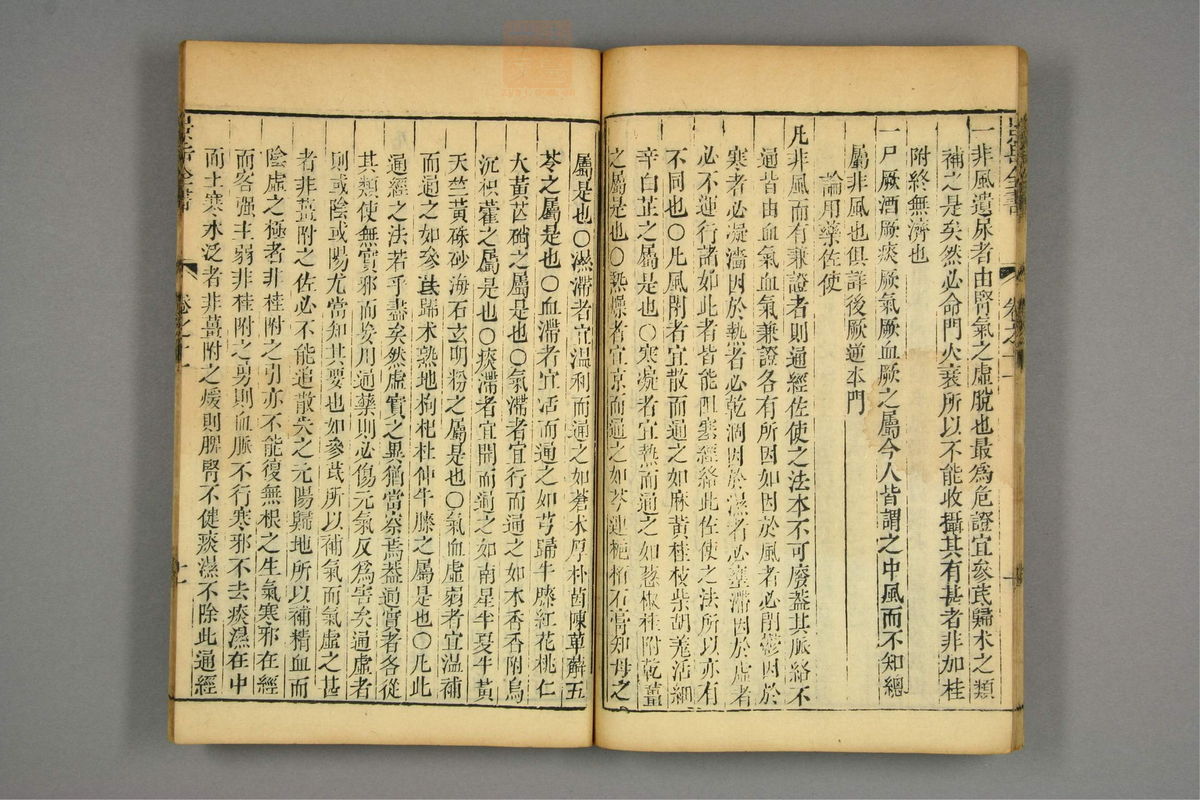 一非風遺尿者由腎氣之虛脫也最為危證宜參芪歸朮之類
補之是矣然必命門火衰所以不能收攝其有甚者非加桂
附終無濟也
一尸厥酒厥痰厥氣厥血厥之屬今人皆謂之中風而不知總
屬非風也俱詳後厥逆本門
論用藥佐使
凡非風而有兼證者則通經佐使之法本不可廢蓋其脈絡不
通皆由血氣血氣兼證各有所因如因於風者必閉鬱因於
寒者必凝濇因於熱者必乾涸因於濕者必壅滯因於虛者
必不運行諸如此者皆能阻塞經絡此佐使之法所以亦有
不同也〇凡風閉者宜散而通之如麻黃桂枝柴胡羌活細
辛白芷之屬是也〇寒凝者宜熱而通之如蔥椒桂附乾薑
之屬是也〇熱燥者宜凉而通之如芩連梔柏石膏知母之
屬是也〇濕滯者宜温利而通之如蒼朮厚朴茵陳萆薢五
苓之屬是也〇血滯者宜活而通之如芎歸牛膝紅花桃仁
大黃芒硝之屬是也〇氣滯者宜行而通之如木香香附烏
沉枳藿之屬是也〇痰滯者宜開而通之如南星半夏牛黃
天竺黃硃砂海石玄明粉之屬是也〇氣血虛弱者宜温補
而通之如參芪歸朮熟地枸杞杜仲牛膝之屬是也〇凡此
通經之法若乎盡矣然虛實之異猶當察焉蓋通實者各從
其類使無實邪而妄用通藥則必傷元氣反為害矣通虛者
則或陰或陽尤當知其要也如參芪所以補氣而氣虛之甚
者非薑附之佐必不能追散失之元陽歸地所以補精血而
陰虛之極者非桂附之引亦不能復無根之生氣寒邪在經
而客强主弱非桂附之勇則血脈不行寒邪不去痰濕在中
而土寒水泛者非薑附之煖則脾腎不健痰濕不除此通經
景岳全書
卷之十一
景岳全書
卷之十一
十一